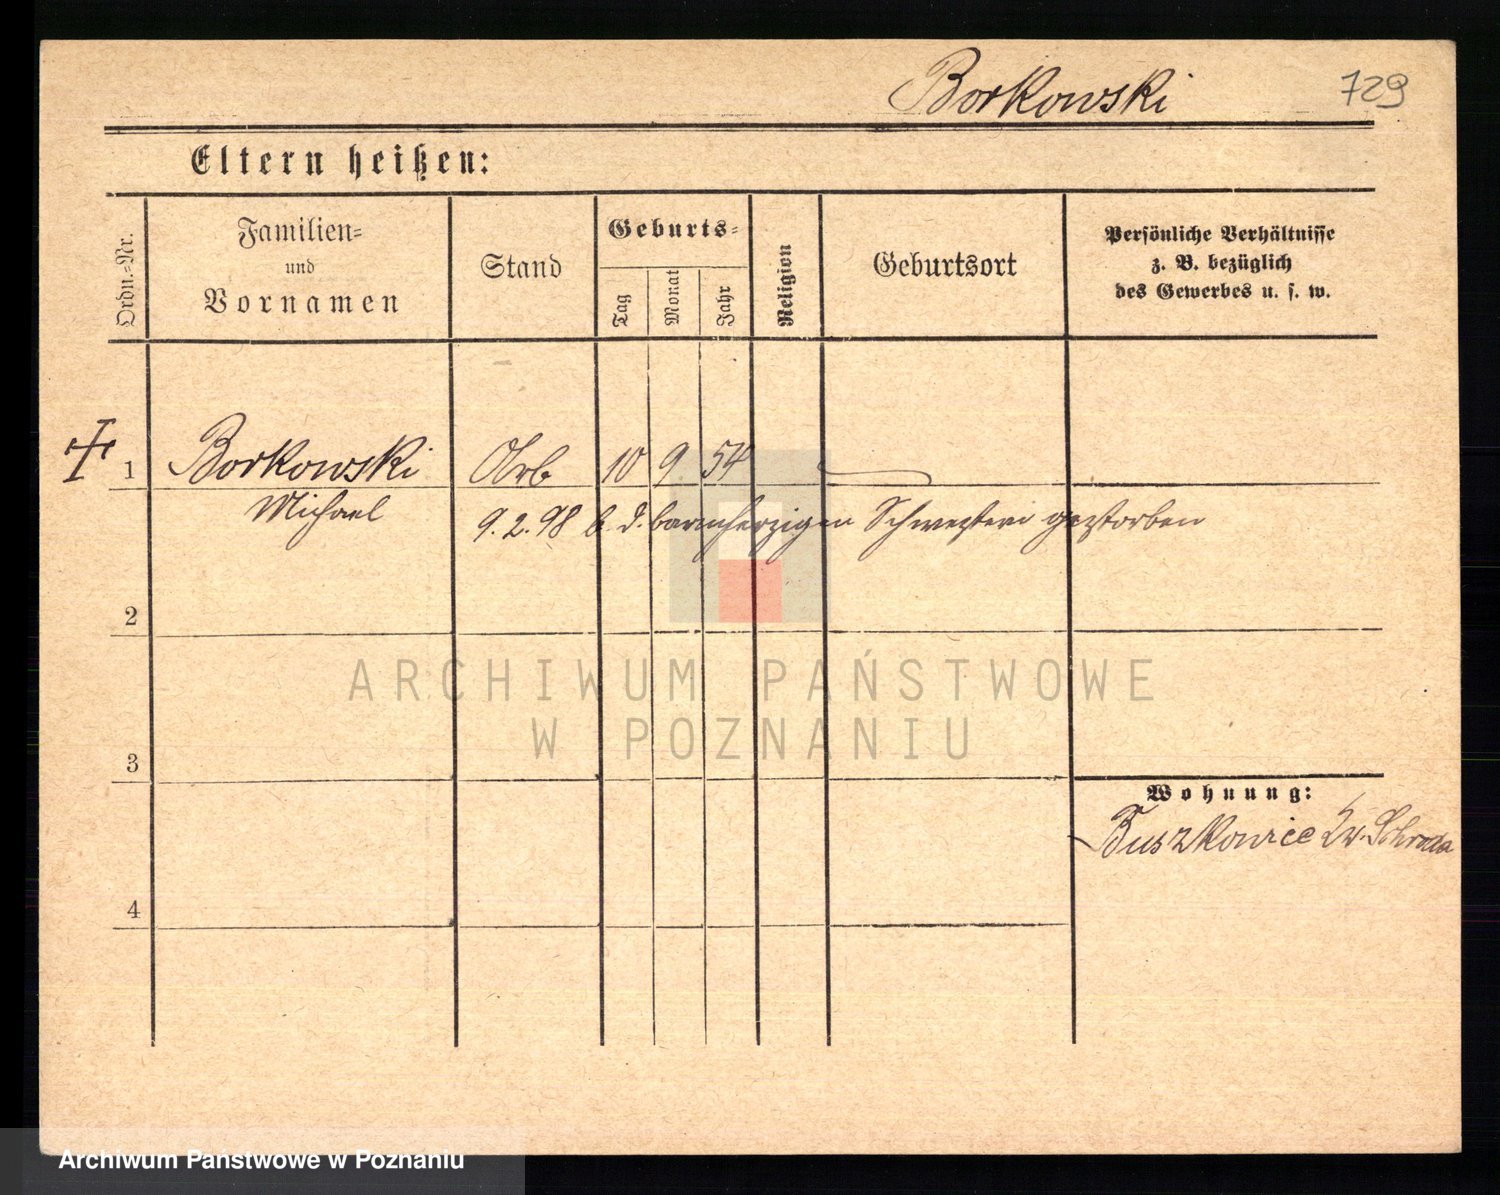 Borkowski
729
Eltern heißen:
Ordn.-Nr.
Familien-
und
Vornamen
Stand
Geburts-
Tag
Monat
Jahr
Religion
Geburtsort
Persönliche Verhältnisse
z. B. bezüglich
des Gewerbes u. s. w.
1 Borkowski Arb 10 9 54
Michael 9.2.98 b. d. barmherzigen Schwestern gestorben
2
3
Wohnung:
Schroda
4
ARCHIWUM PAŃSTWOWE
W POZNANIU
Archiwum Państwowe w Poznaniu